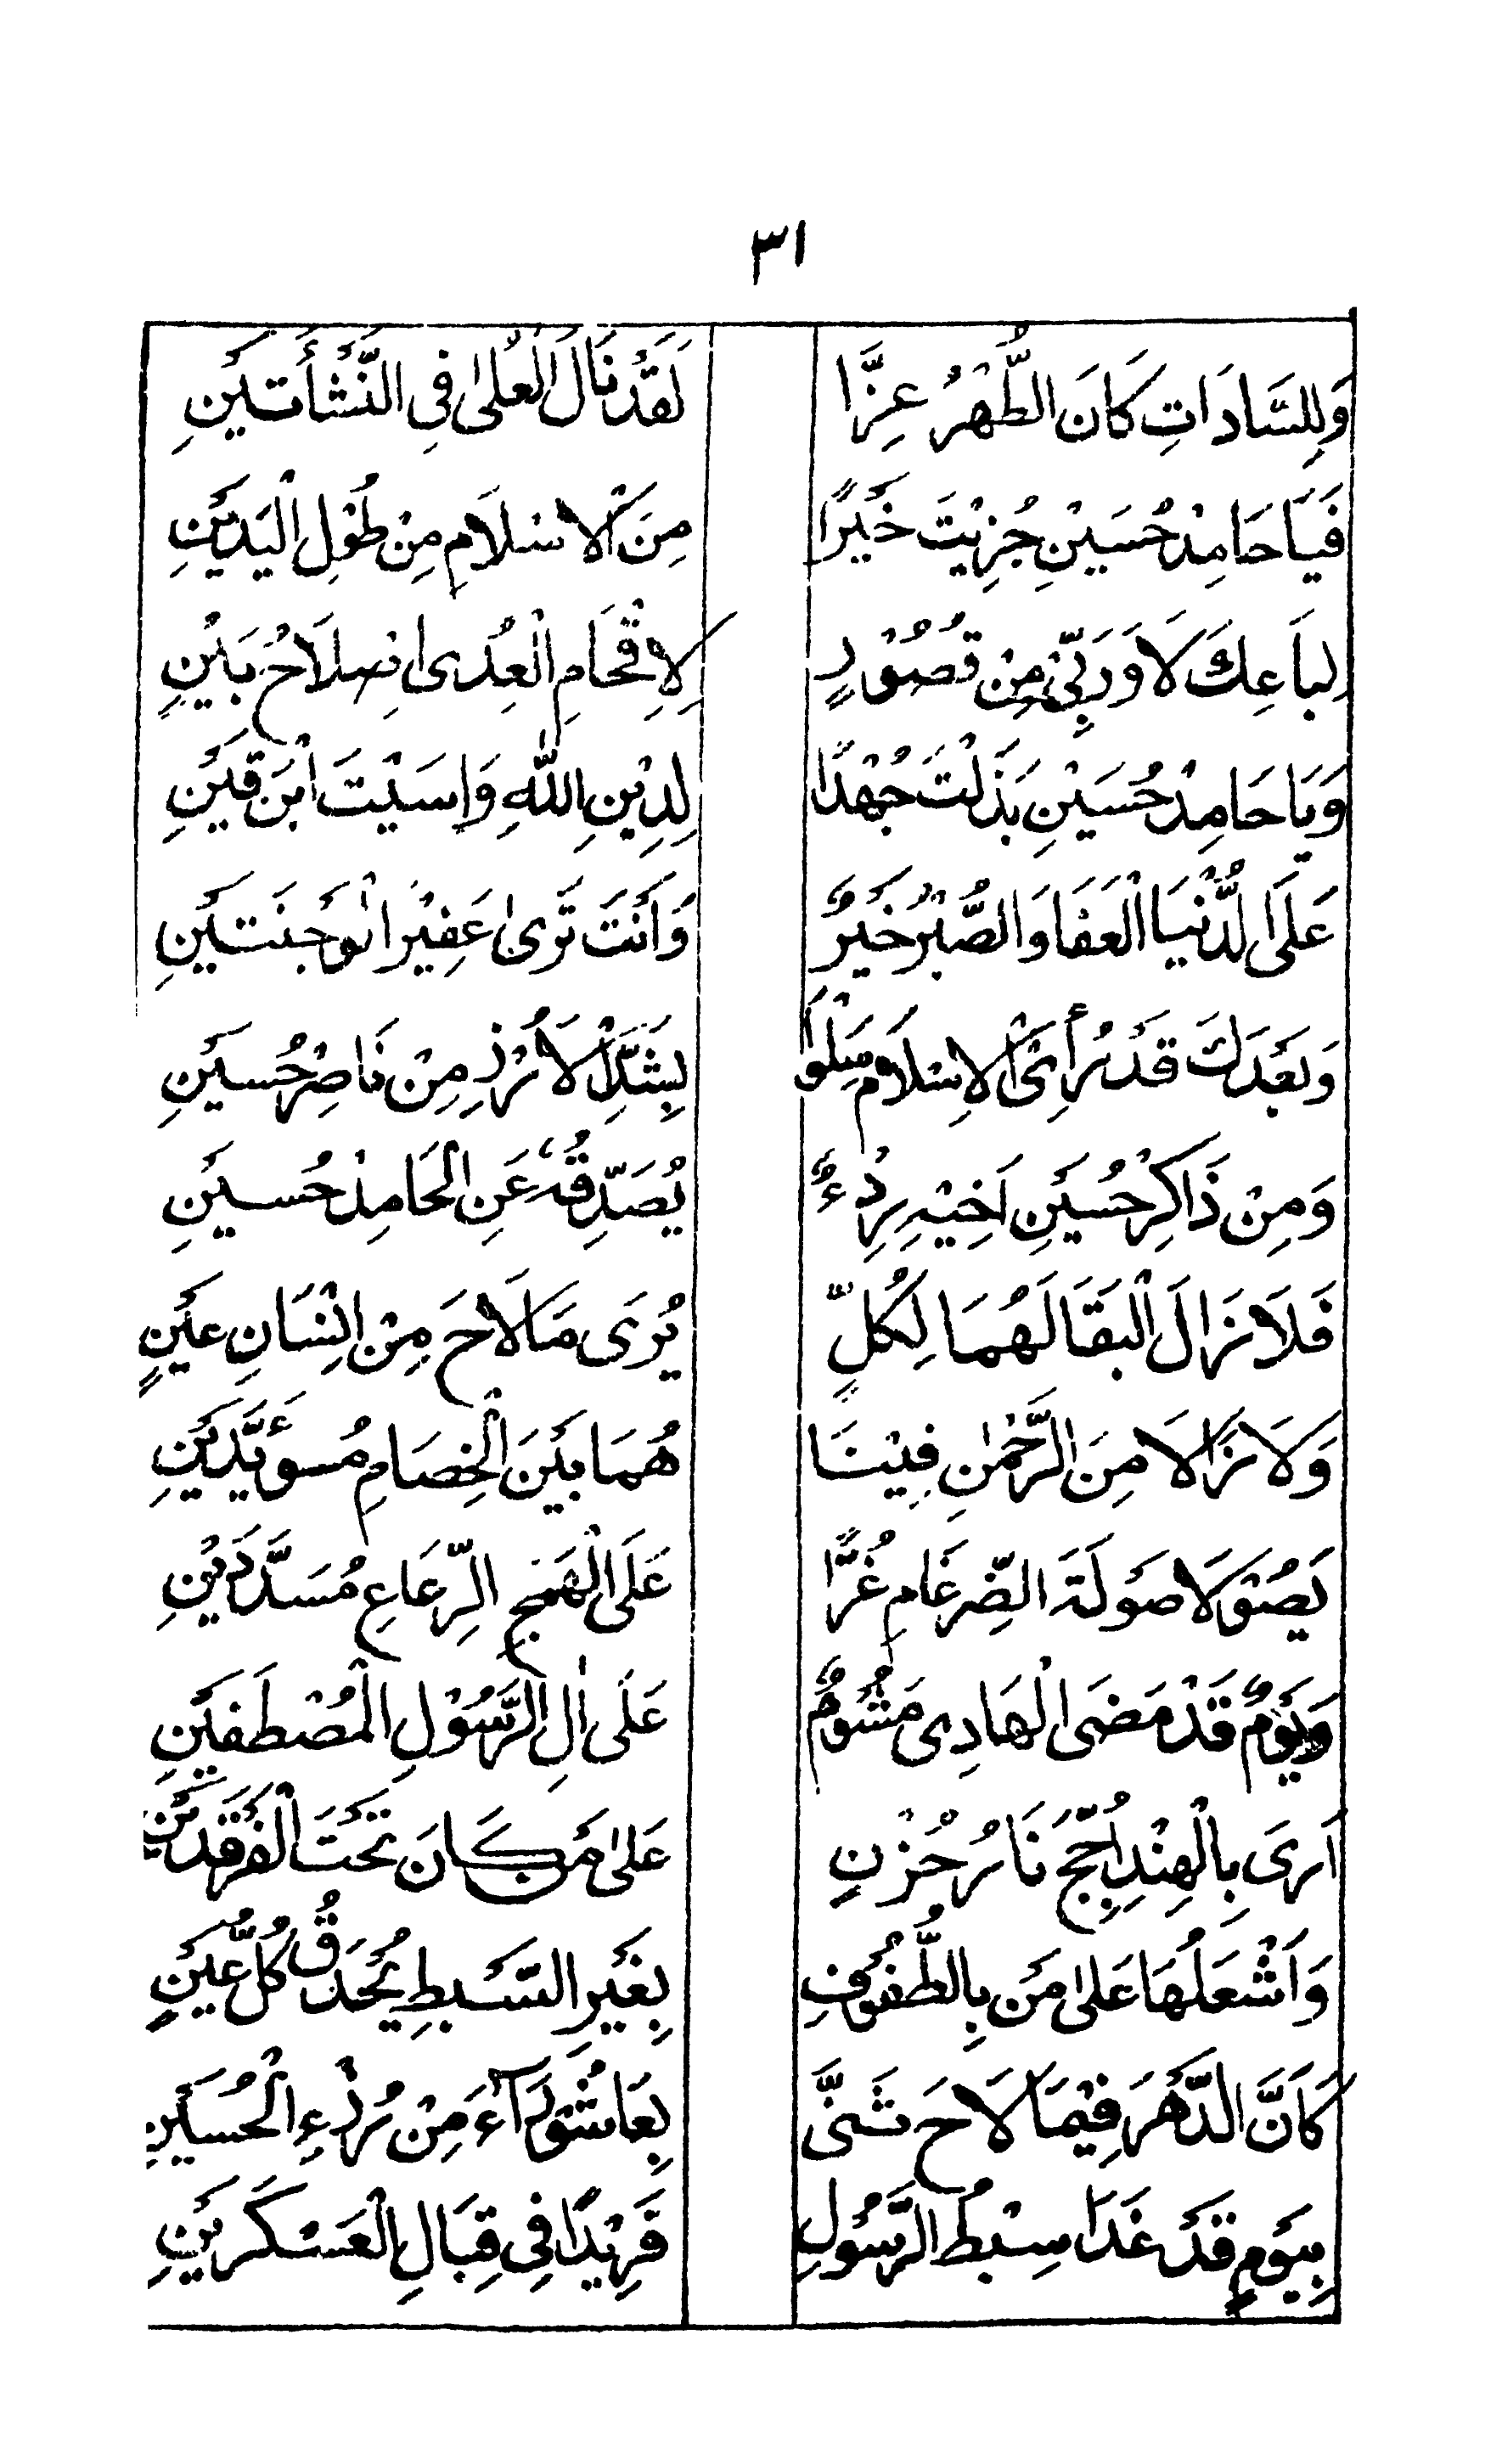 ٣١
وَلِلسَّادَاتِ كَانَ الطُّهْرُ عِزًّا لَقَدْ نَالَ الْعُلٰى فِى النَّشْأَتَيْنِ
فَيَا حَامِدْ حُسَيْنِ جُزِيْتَ خَيْرًا مِنَ الْاِسْلَامِ مِنْ طُوْلِ الْيَدَيْنِ
لِبَاعِكَ لَا وَرَبِّىْ مِنْ قُصُوْرٍ لِاِقْحَامِ الْعِدٰى اِصْلَاحُ بَيْنٍ
وَيَا حَامِدْ حُسَيْنِ بَذَلْتَ جُهْدًا لِدِيْنِ اللّٰهِ وَاسَيْتَ ابْنَ قَيْنِ
عَلَى الدُّنْيَا الْعَفَا وَالصَّبْرُ خَيْرٌ وَاَنْتَ تَرٰى عَفِيْرَ الْوَجْنَتَيْنِ
وَبَعْدَكَ قَدْ رُأِىَ الْاِسْلَامُ سَلْوًا بِشَدِّ الْاُزْرِ مِنْ نَاصِرْ حُسَيْنِ
وَمِنْ ذَاكِرْ حُسَيْنِ اَخِيْهِ رِدْءٌ يُصَدِّقُهُ عَنِ الْحَامِدْ حُسَيْنِ
فَلَا زَالَ الْبَقَا لَهُمَا لِكُلٍّ يُرَى مَا لَاحَ مِنْ اِنْسَانِ عَيْنٍ
وَلَا زَالَا مِنَ الرَّحْمٰنِ فِيْنَا هُمَا بَيْنَ الْخِصَامِ مُوَٴيَّدَيْنِ
يَصُوْلَا صَوْلَةَ الضِّرْغَامِ غُرًّا عَلَى الْهَمَجِ الرِّعَاعِ مُسَدَّدَيْنِ
وَيَوْمٌ قَدْ مَضَى الْهَادِى مَشُوْمٌ عَلَى اٰلِ الرَّسُوْلِ الْمُصْطَفَيْنِ
اَرَى بِالْهِنْدِ اُجِّجَ نَارُ حُزْنٍ عَلٰى مَنْ كَانَ تَحْتَ الْفَرْقَدَيْنِ
وَاَشْعَلُهَا عَلٰى مَنْ بِالطُّفُوْفِ بِغَيْرِ السِّبْطِ يُحْدَقُ كُلُّ عَيْنٍ
كَاَنَّ الدَّهْرَ فِيْمَا لَاحَ ثَنّٰى بِعَاشُوْرَآءَ مِنْ رُزْءِ الْحُسَيْنِ
بِيَوْمٍ قَدْ غَدَا سِبْطُ الرَّسُوْلِ فَرِيْدًا فِى قِبَالِ الْعَسْكَرَيْنِ